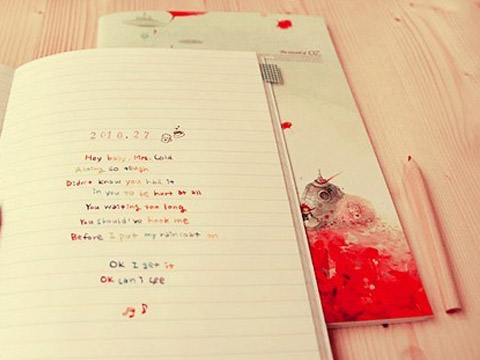 2010.27
Hey baby, Mrs. Cold
Acting so tough
Didn't know you had it
in you to be hurt at all
You waiting too long
You should've hook me
Before I put my raincoat on
OK I get it
OK can I see